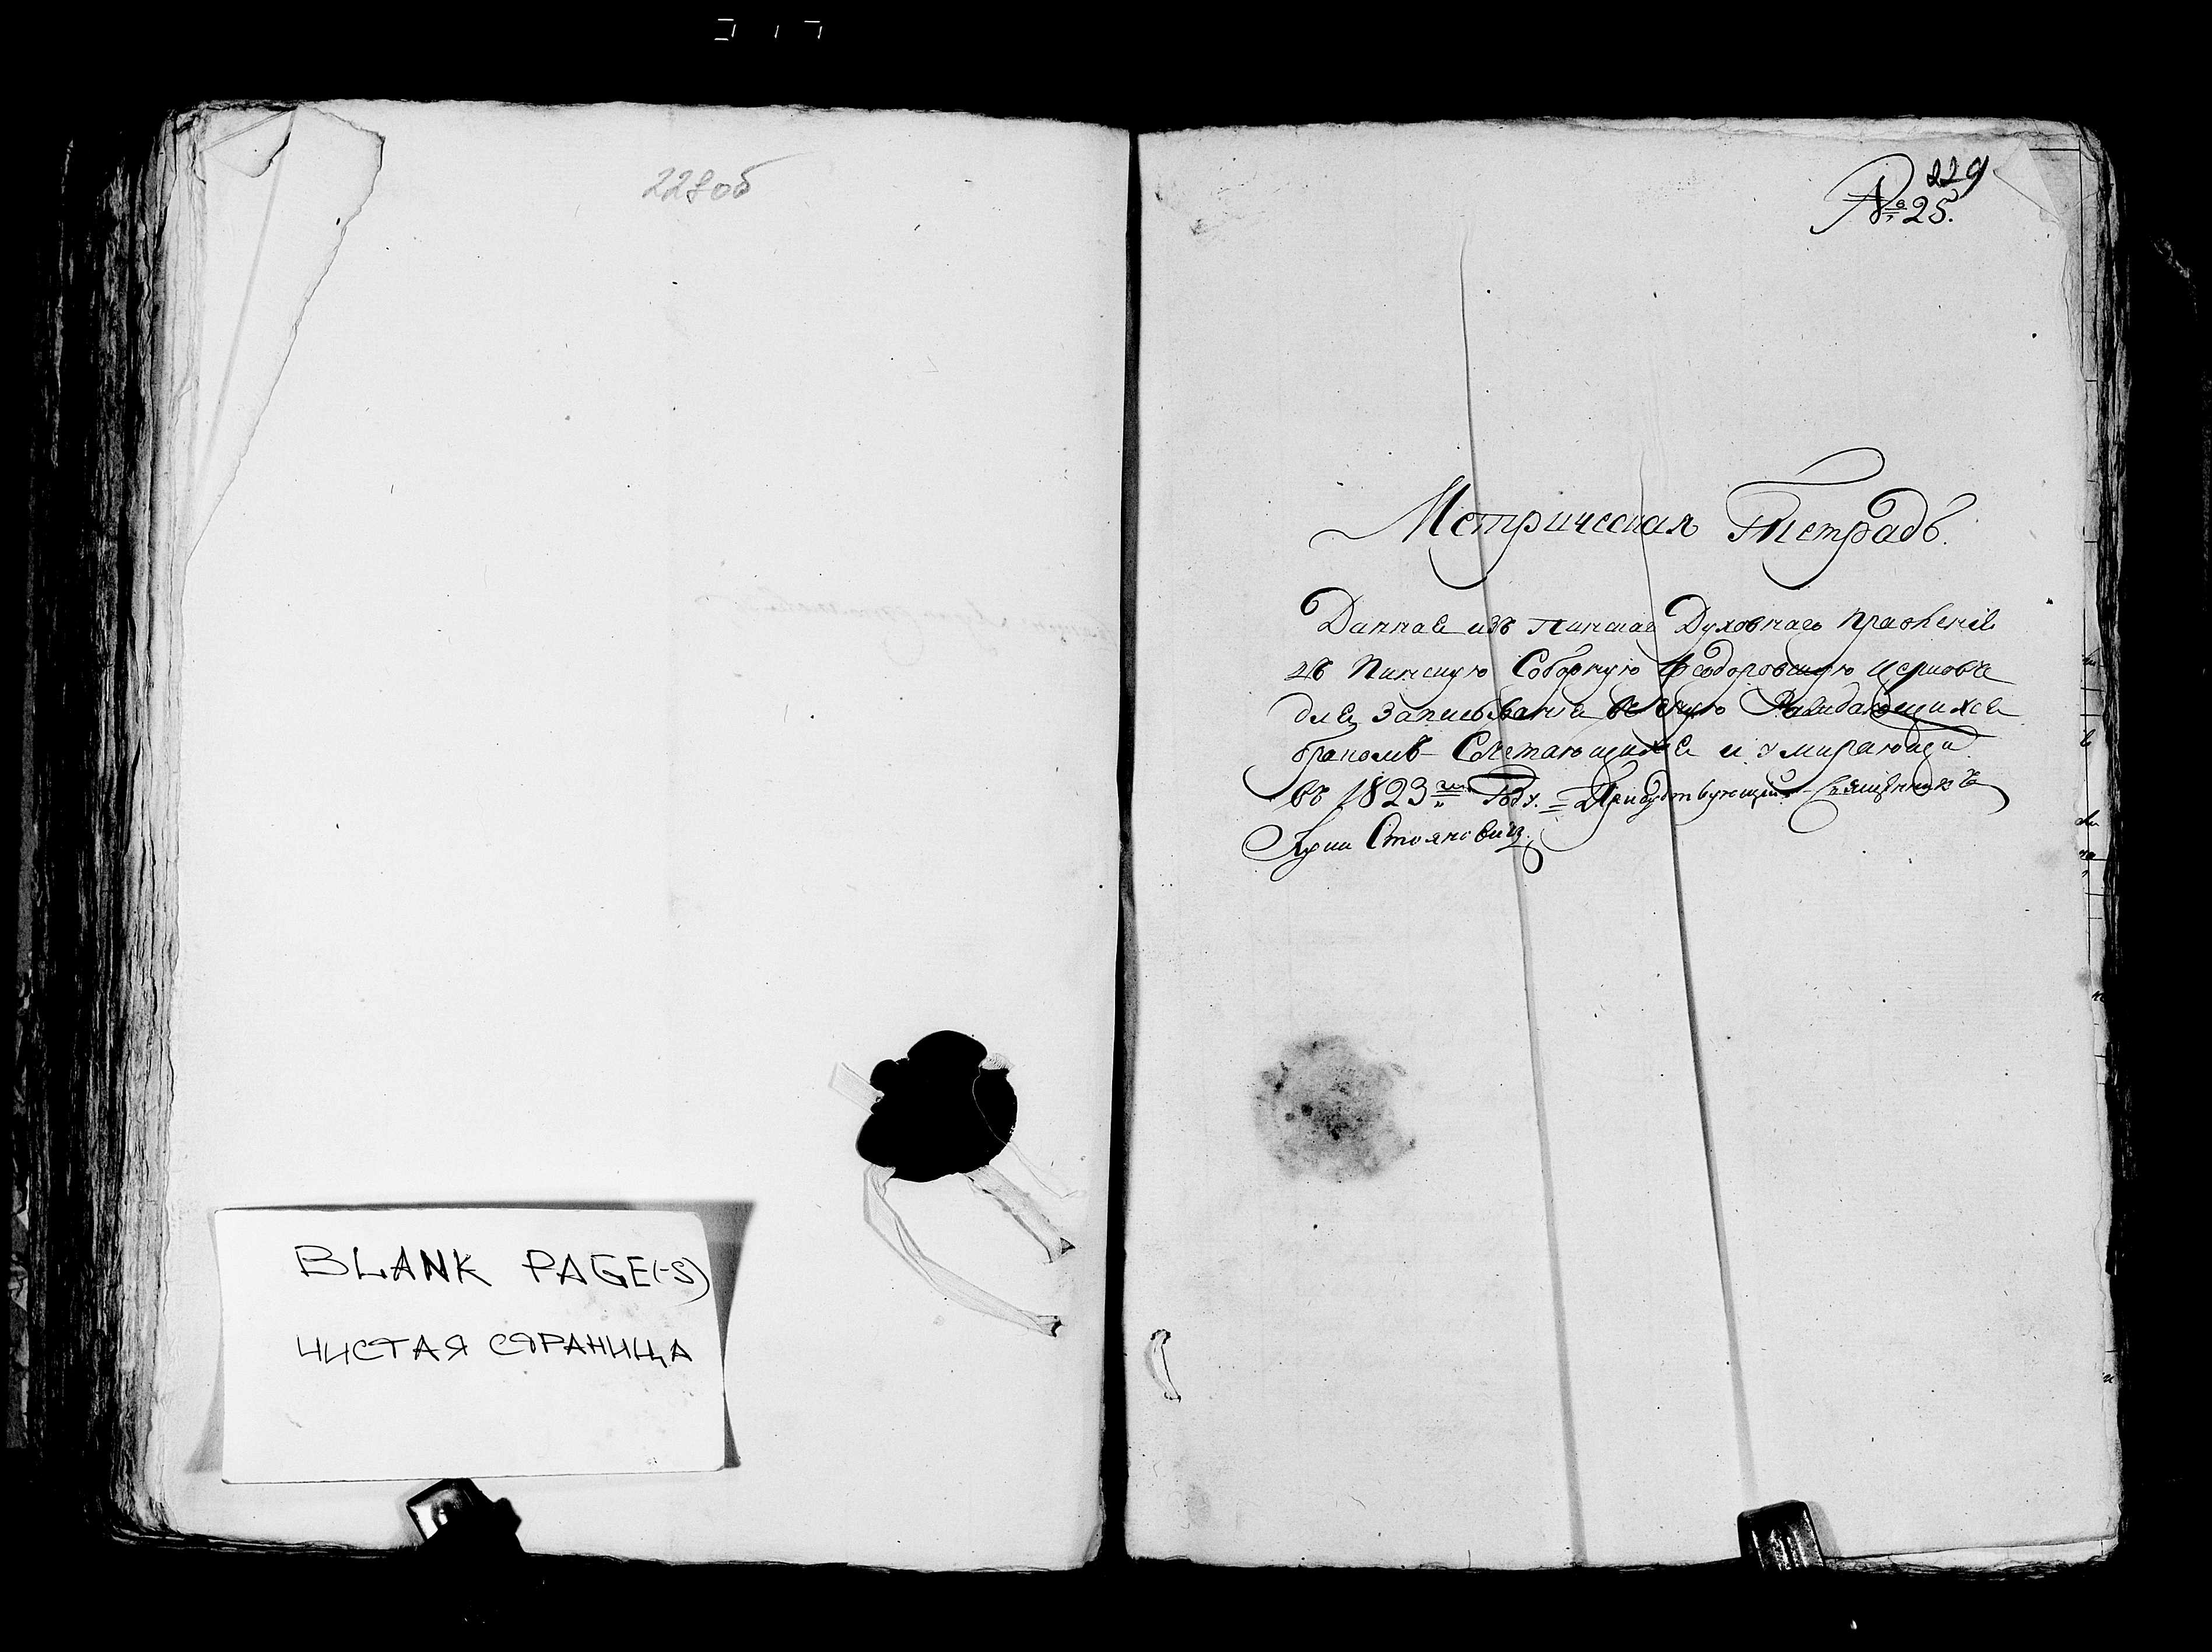 228об
BLANK PAGE(-S)
ЧИСТАЯ СТРАНИЦА
229
№ 25.
Метрическая Тетрадь.
Данная изъ Пинскаго Духовнаго Правленія
въ Пинскую Соборную Феодоровскую церковь
для записыванія въ оную раждающихся
бракомъ Сочетающихся и умирающи
въ 1823м Году. = Присудствующий Священникъ
Стояновичъ